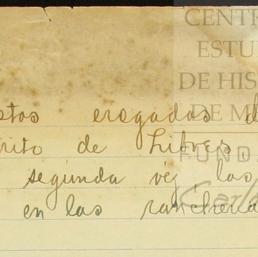 CENTR
ESTU
DE HIS
DE M
FUND
stos erogados d
rito de Libres
segunda vez los
en las rancheria